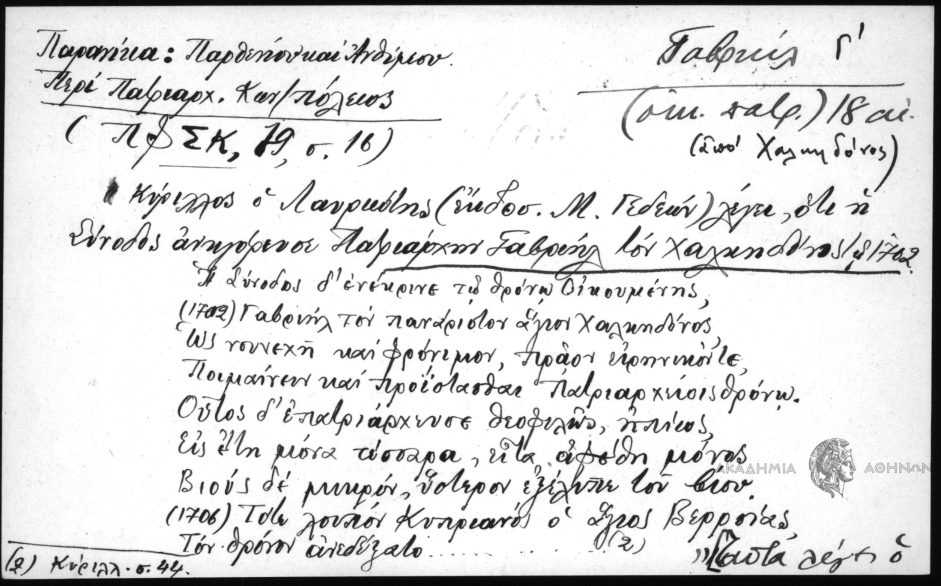 Παρανίκα: Παρθενίου και Ανθίμου. Γαβριήλ Γ'
Περί Πατριαρχ. Κων/πόλεως
(οικ. πατρ.) 18 αι.
(ΠΦΣΚ, 19, σ. 16) (ἀπό Χαλκηδόνος)
Κύριλλος ὁ Λαυριώτης (ἔκδοσ. Μ. Γεδεών) λέγει, ὅτι ἡ
Σύνοδος ἀνηγόρευσε Πατριάρχην Γαβριήλ τόν Χαλκηδόνος τῷ 1702.
Ἡ Σύνοδος δ' ἐνέκρινε τῷ θρόνῳ Οἰκουμένης,
(1702) Γαβριήλ τον πανάριστον ἅγιον Χαλκηδόνος,
Ὡς νουνεχῆ καί φρόνιμον, πρᾶον εἰρηνικόν τε,
Ποιμαίνειν καί προΐστασθαι Πατριαρχείοις θρόνῳ.
Οὗτος δ' ἐπατριάρχευσε θεοφιλῶς, ἠπίως,
Εἰς ἔτη μόνα τέσσαρα, εἶτα ἀφέθη μόνος
Βιούς δέ μικρόν, ὕστερον ἐξέλιπε τοῦ βίου.
(1706) Τότε λοιπόν Κυπριανός ὁ ἅγιος Βερροίας
Τόν θρόνον ἀνεδέξατο.............(2) "Ταῦτα λέγει ὁ
(2) Κύριλλ. σ. 44.
ΑΚΑΔΗΜΙΑ ΑΘΗΝΩΝ